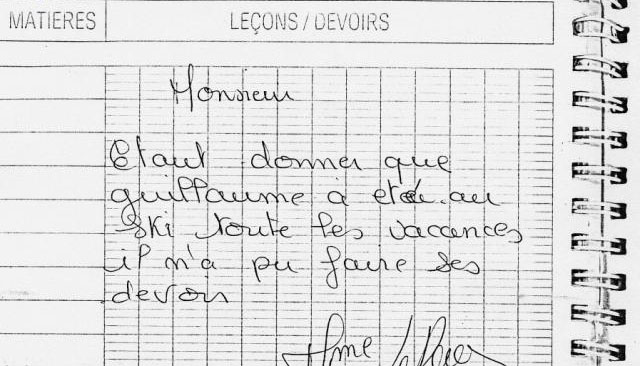 MATIERES LEÇONS / DEVOIRS
Monsieur
Etant donner que
guillaume à eté au
ski toute les vacances
il n'a pu faire ses
devoirs
Mme